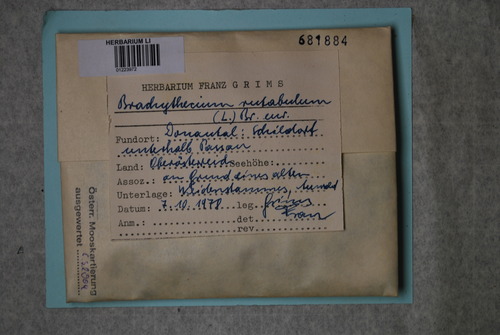 HERBARIUM LI
681884
HERBARIUM FRANZ GRIMS
Brachythecium rutabulum
(L.) Br. eur.
Fundort: Donautal: Schildorf
unterhalb Passau
Land: Oberösterreich Seehöhe:
Assoz.: an Grund eines alten
Unterlage: Weidenstammes,
Datum: 7.10.1978 leg. Grims
Franz
Anm.: det.
rev.
Österr. Mooskartierung
ausgewertet